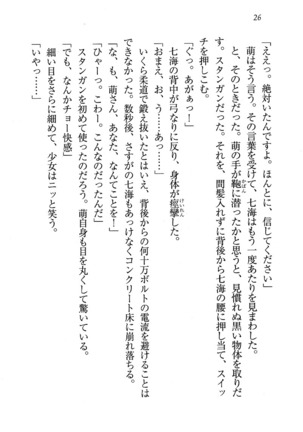 26
「ええっ。絶対いたんですよ。ほんとに、信じてください」
萌はそう言う。その言葉を受けて、七海はもう一度あたりを見まわした。
と、そのときだった。萌の手が鞄に潜ったかと思うと、見慣れぬ黒い物体を取りだ
す。スタンガンだった。それを、間髪入れずに背後から七海の腰に押し当て、スイッ
チを押しこむ。
「ぐっ。あがぁっ……」
七海の背中が弓なりに反り、身体が痙攣した。
「おまえ、お、う……あっ……」
いくら柔道で鍛え抜いたとはいえ、背後からの何十万ボルトの電流を避けることは
できなかった。数秒後、さすがの七海もあっけなくコンクリート床に崩れ落ちる。
「な、も、萌さん、あなた、なんてことを！」
「ひゃーっ。こわー。こんなのだったんだ」
スタンガンを初めて使ったのだろう。萌自身も目を丸くして驚いている。
「でも、なんかチョー快感」
細い目をさらに細めて、少女はニッと笑う。
「いやっ……」